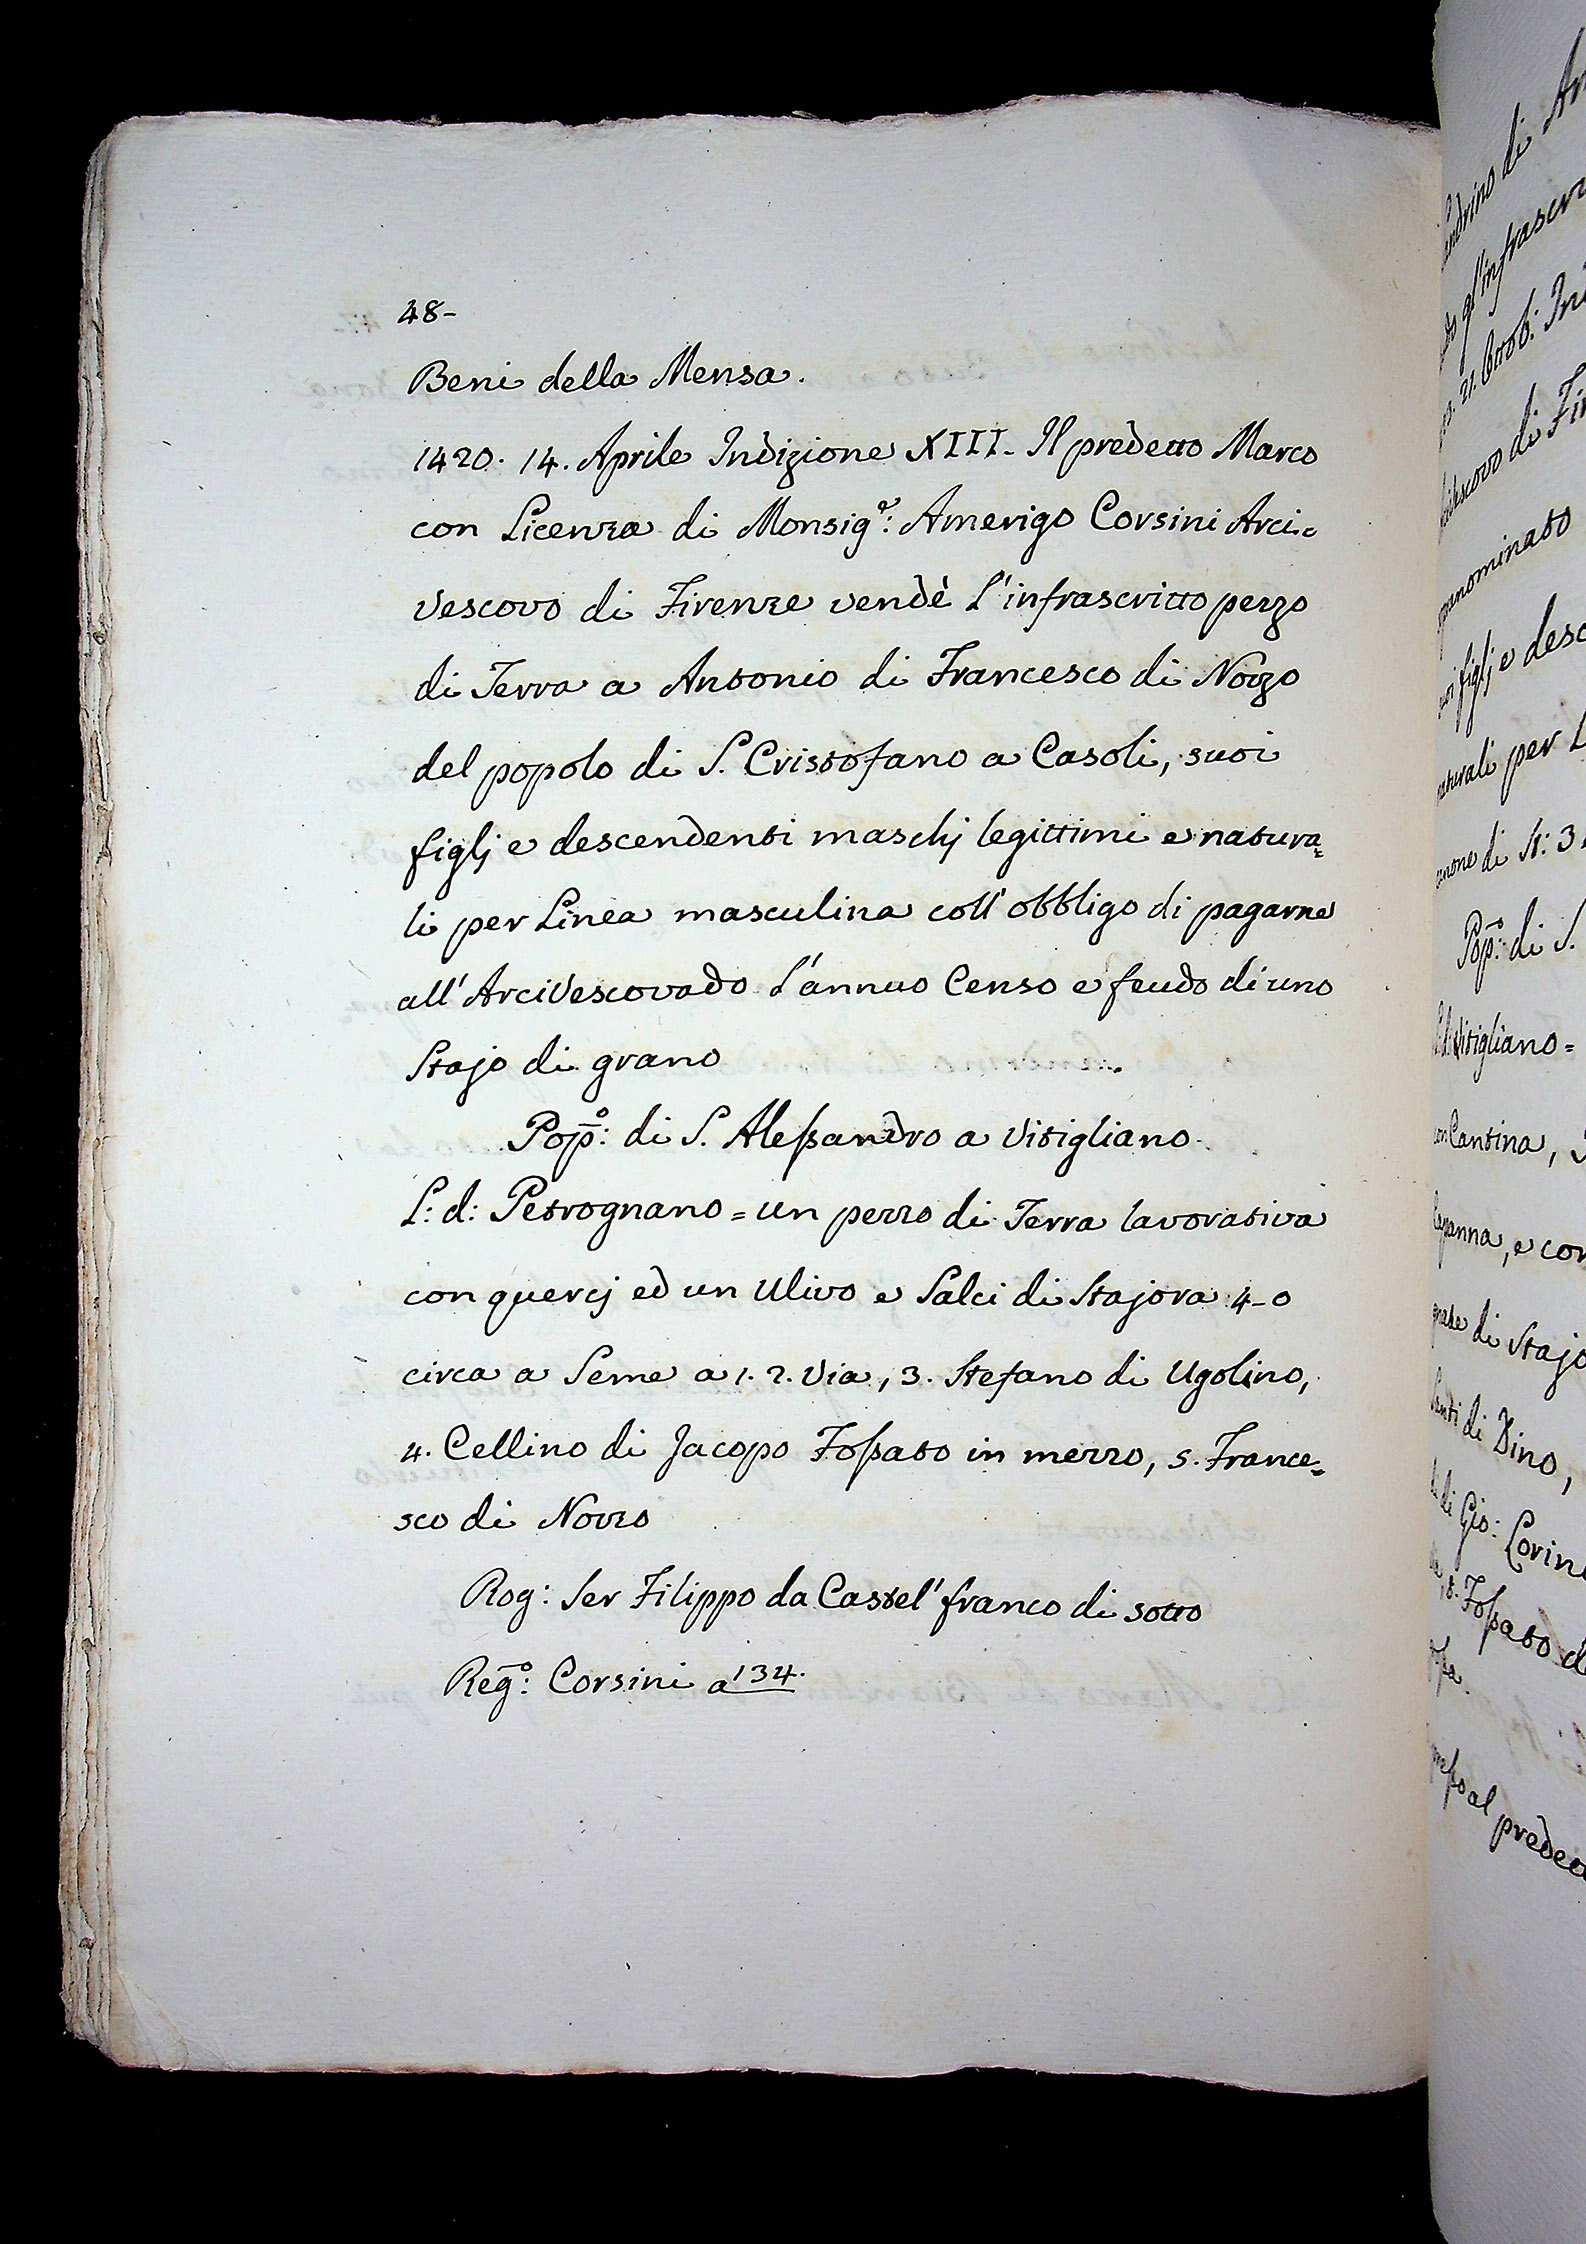 48-
Beni della Mensa.
1420. 14. Aprile Indizione XIII. Il predetto Marco
con Licenza di Monsig.e: Amerigo Corsini Arci=
Vescovo di Firenze vendè l'infrascritto pezzo
di Terra a Antonio di Francesco di Nozzo
del popolo di S. Cristofano a Casoli, suoi
figlj e descendenti maschj legittimi e natura=
li per Linea masculina coll'obbligo di pagarne
all'ArciVescovado l'annuo Censo e feudo di uno
Stajo di grano
Pop:o di S. Alessandro a Vitigliano
L: d: Petrognano = un pezzo di Terra lavorativa
con quercj ed un Ulivo e Salci di Stajora 4-0
circa a Seme a 1. 2. Via, 3. Stefano di Ugolino,
4. Cellino di Jacopo Fossato in mezzo, 5. France=
sco di Nozzo
Rog: Ser Filippo da Castel'franco di sotto
Reg:o Corsini a 134.
di
gl'infrascr
21. Ottob: Ind
di Fir
e desc
per L
di St: 3
Pop:o di S.
Vitigliano =
Cantina,
, e con
di Stajo
di Dino,
Gio:
Fossato
al predet